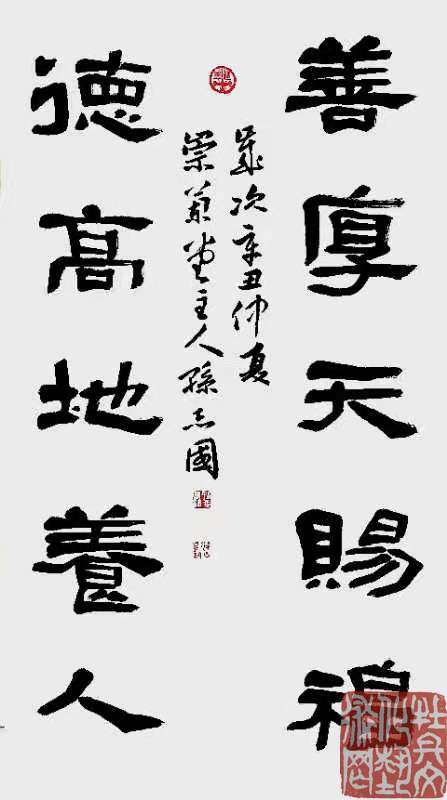 善厚天賜福
歲次辛丑仲夏
崇堂主人孫志國
德高地養人